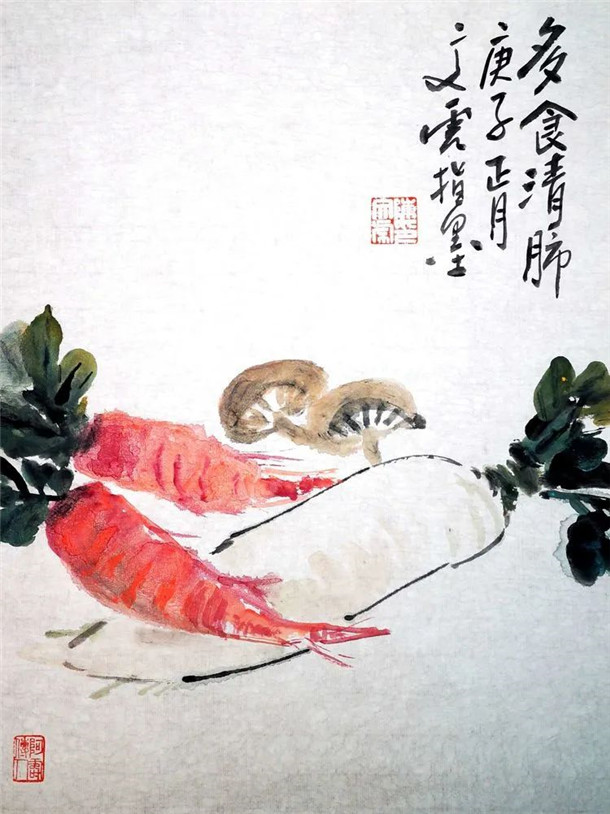 多食清肺
庚子正月
文云指墨